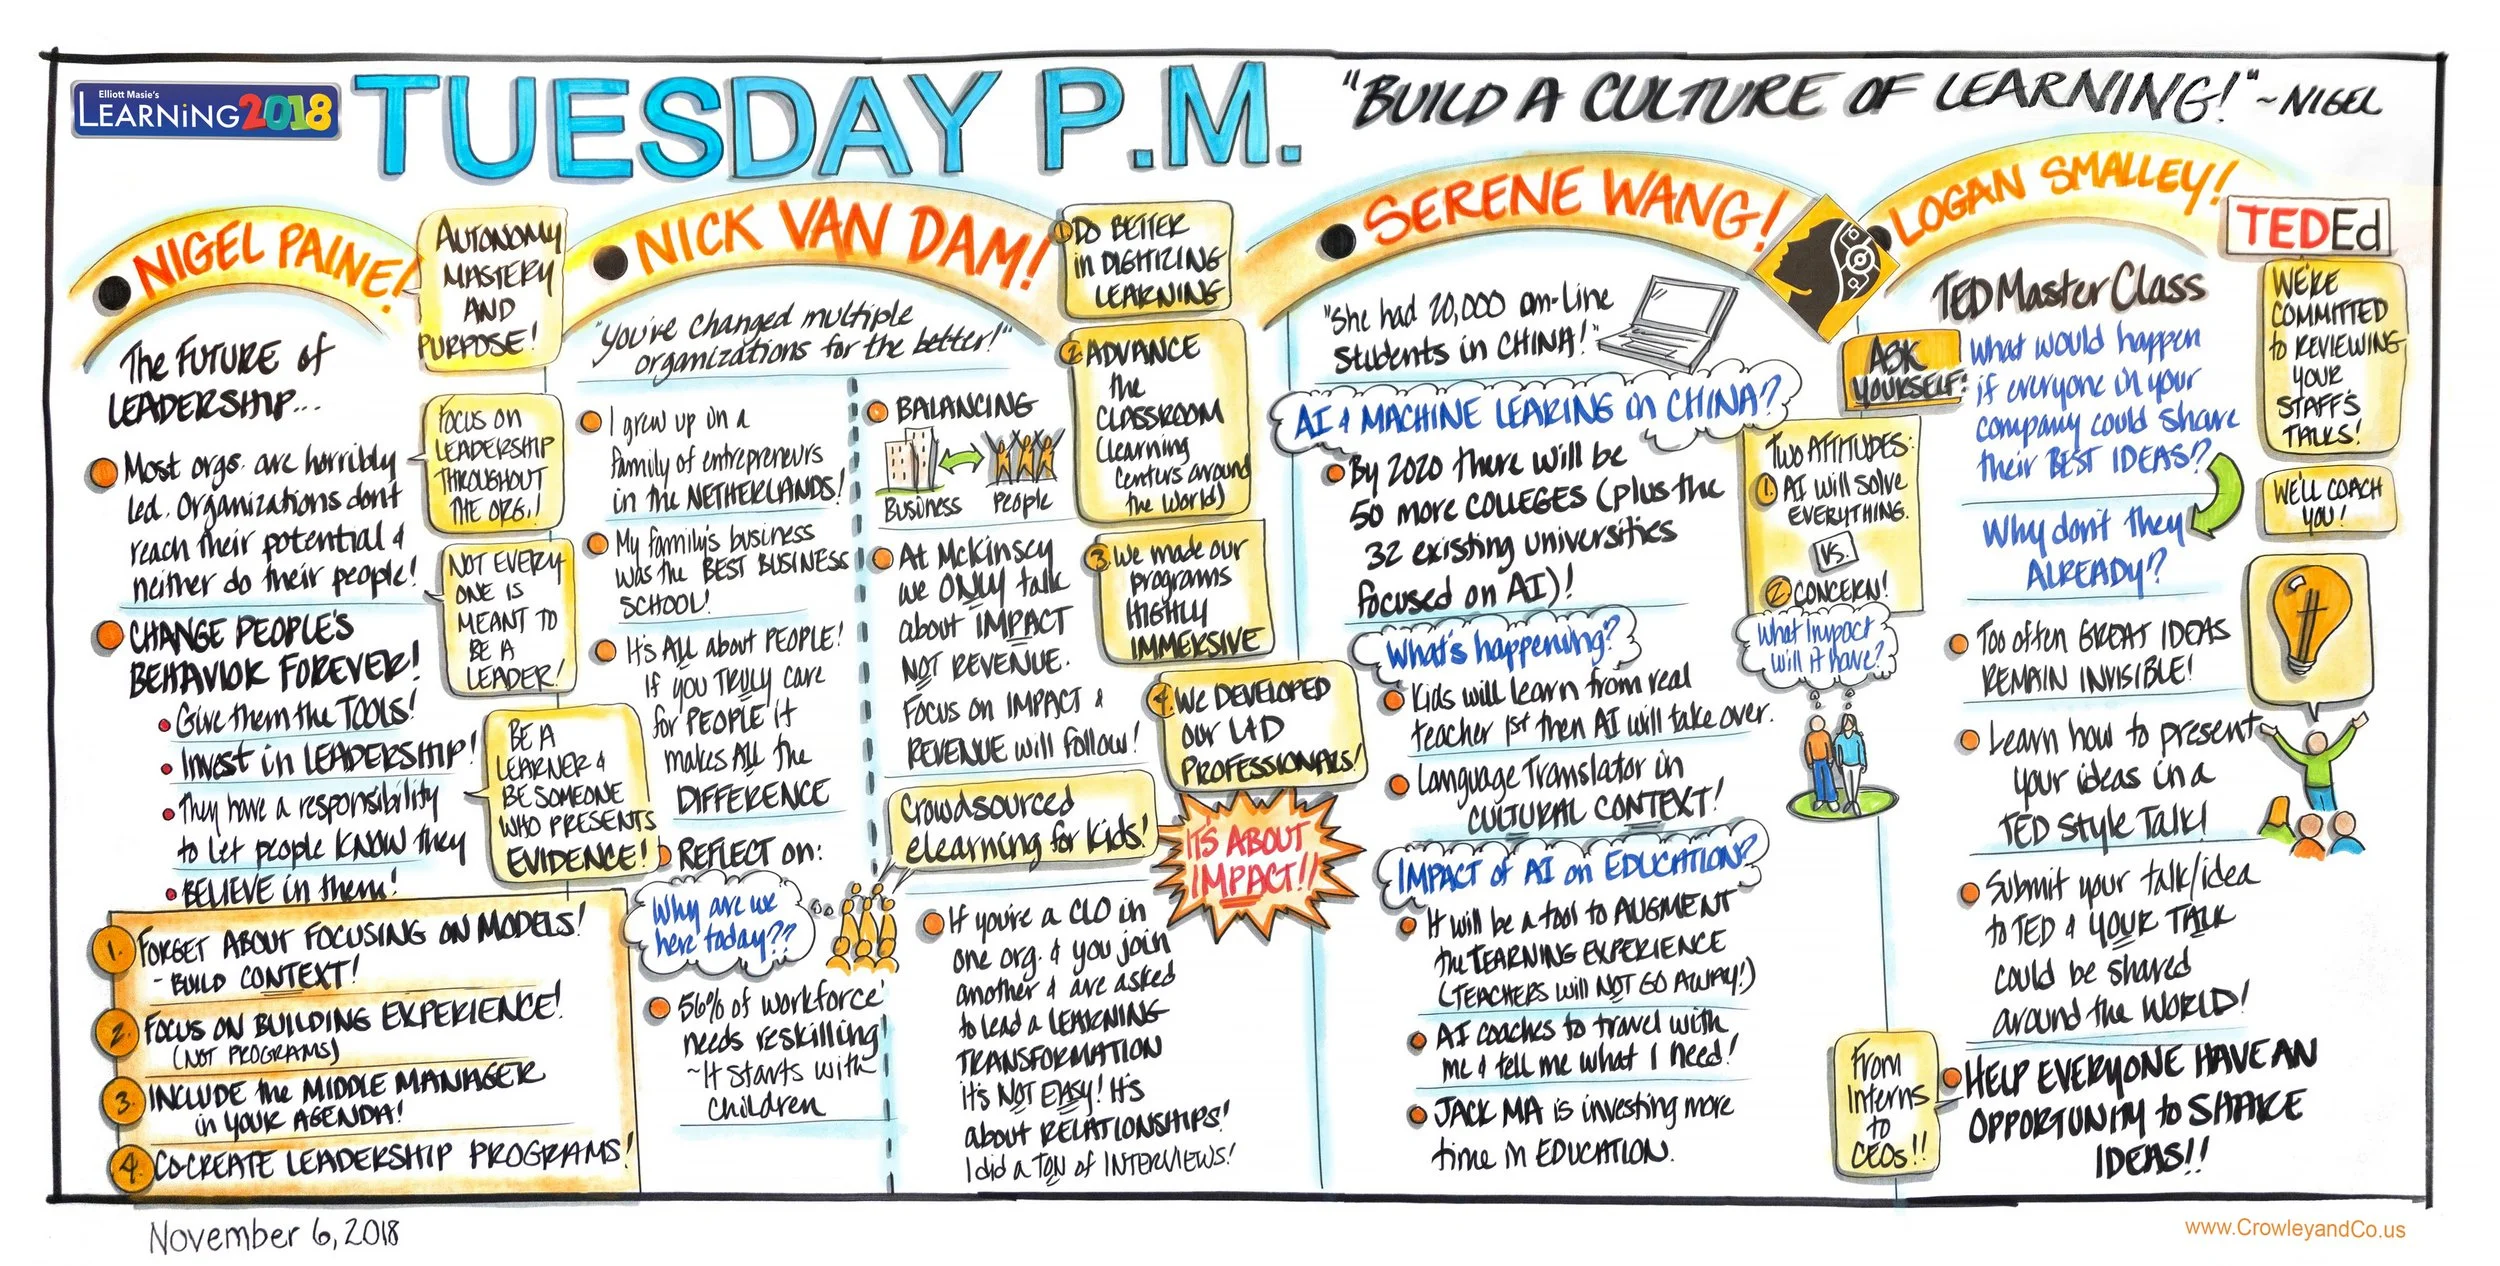 Elliott Masie's
LEARNiNG2018
TUESDAY P.M.
"BUILD A CULTURE OF LEARNING!" ~NIGEL
NIGEL PAINE!
The FUTURE of
LEADERSHIP...
Most orgs. are horribly
led. Organizations don't
reach their potential &
neither do their people!
CHANGE PEOPLE'S
BEHAVIOR FOREVER!
Give them the TOOLS!
Invest in LEADERSHIP!
They have a responsibility
to let people KNOW they
BELIEVE in them!
1. FORGET ABOUT FOCUSING ON MODELS!
- BUILD CONTEXT!
2. FOCUS ON BUILDING EXPERIENCE!
(NOT PROGRAMS)
3. INCLUDE the MIDDLE MANAGER
in YOUR AGENDA!
4. CO-CREATE LEADERSHIP PROGRAMS!
AUTONOMY
MASTERY
AND
PURPOSE!
FOCUS ON
LEADERSHIP
THROUGHOUT
THE ORG.!
NOT EVERY
ONE IS
MEANT TO
BE A
LEADER!
BE A
LEARNER &
BE SOMEONE
WHO PRESENTS
EVIDENCE!
NICK VAN DAM!
"You've changed multiple
organizations for the better!"
I grew up in a
family of entrepreneurs
in the NETHERLANDS!
My family's business
was the BEST BUSINESS
SCHOOL!
It's ALL about PEOPLE!
If you TRULY care
for PEOPLE it
makes ALL the
DIFFERENCE
REFLECT on:
Why are we
here today??
56% of workforce
needs reskilling!
~It starts with
children
BALANCING
Business
People
At McKinsey
we ONLY talk
about IMPACT
NOT REVENUE.
Focus on IMPACT &
REVENUE will follow!
Crowdsourced
elearning for Kids!
If you're a CLO in
one org. & you join
another & are asked
to lead a LEARNING
TRANSFORMATION
it's NOT EASY! It's
about RELATIONSHIPS!
I did a TON of INTERVIEWS!
1. DO BETTER
in DIGITIZING
LEARNING
2. ADVANCE
the
CLASSROOM
(learning
Centers around
the World)
3. We made our
programs
HIGHLY
IMMERSIVE
4. WE DEVELOPED
our L+D
PROFESSIONALS!
IT'S ABOUT
IMPACT!!
SERENE WANG!
"She had 20,000 on-line
students in CHINA!"
AI & MACHINE LEARING in CHINA?
By 2020 there will be
50 more COLLEGES (plus the
32 existing universities
focused on AI)!
What's happening?
Kids will learn from real
teacher 1st then AI will take over.
Language Translator in
CULTURAL CONTEXT!
IMPACT of AI on EDUCATION?
It will be a tool to AUGMENT
the LEARNING EXPERIENCE
(TEACHERS will NOT GO AWAY!)
AI coaches to travel with
me & tell me what I need!
JACK MA is investing more
time in EDUCATION.
TWO ATTITUDES:
1. AI will SOLVE
EVERYTHING.
VS.
2. CONCERN!
What impact
will it have?
LOGAN SMALLEY!
TEDEd
TED Master Class
ASK
YOURSELF:
What would happen
if everyone in your
company could share
their BEST IDEAS?
Why don't they
ALREADY?
Too often GREAT IDEAS
REMAIN INVISIBLE!
Learn how to present
your ideas in a
TED Style Talk!
Submit your talk/idea
to TED & YOUR TALK
could be shared
around the WORLD!
From
Interns
to
CEOs!!
HELP EVERYONE HAVE AN
OPPORTUNITY to SHARE
IDEAS!!
WE'RE
COMMITTED
to REVIEWING
YOUR
STAFF'S
TALKS!
WE'LL COACH
YOU!
November 6, 2018
www.CrowleyandCo.us